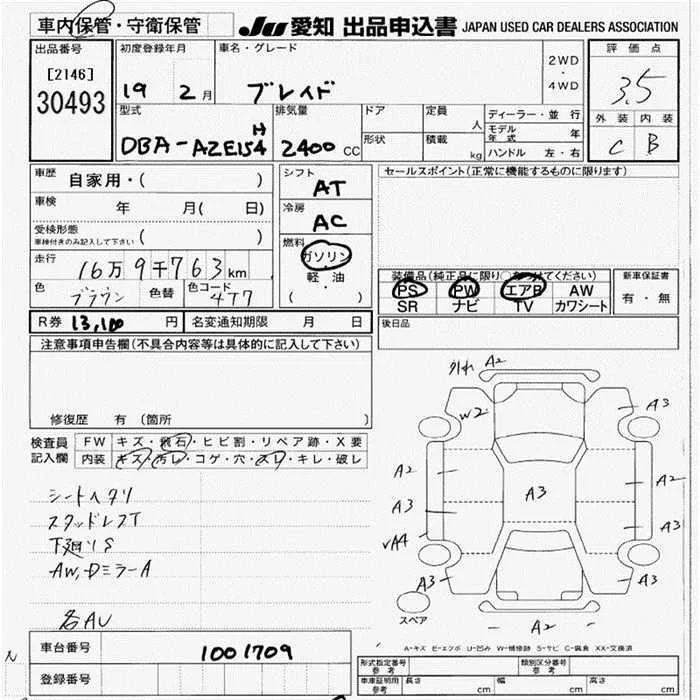 車内保管・守衛保管
JU 愛知 出品申込書 JAPAN USED CAR DEALERS ASSOCIATION
出品番号
[2146]
30493
初度登録年月
19 2月
車名・グレード
ブレイド
2WD
・
4WD
評価点
3.5
外装 内装
C B
型式
DBA-AZE154H
排気量
2400 CC
ドア
形状
定員
人
積載
kg
ディーラー・並行
モデル年式 年
ハンドル 左・右
車歴 自家用・( )
車検 年 月( 日)
受検形態
車検付きのみ記入して下さい ( )
走行 16万9千763km
色 ブラウン 色替 色コード 4T7
シフト
AT
冷房
AC
燃料
ガソリン
・
軽・油
( )
セールスポイント(正常に機能するものに限ります)
装備品(純正品に限り○をつけてください)
PS PW エアB AW
SR ナビ TV カワシート
新車保証書
有・無
R券 13,100 円 名変通知期限 月 日
後日品
注意事項申告欄(不具合内容等は具体的に記入して下さい)
修復歴 有 (箇所
検査員記入欄
FW キズ・飛石・ヒビ割・リペア跡・X要
内装 キズ・汚レ・コゲ・穴・スレ・キレ・破レ
シートヘタリ
スタッドレスT
下廻りS
AW,DミラーA
各AU
外れ A2
W2
A3
A2
A3
A2
A3
A3
A3
A3
A2
スペア
A-キズ E-エクボ U-凹み W-補修跡 S-サビ C-腐食 XX-交換済
車台番号 1001709
登録番号
形式指定番号 参考
類別区分番号 参考
車庫証明用 参考
長さ cm 幅 cm 高さ cm